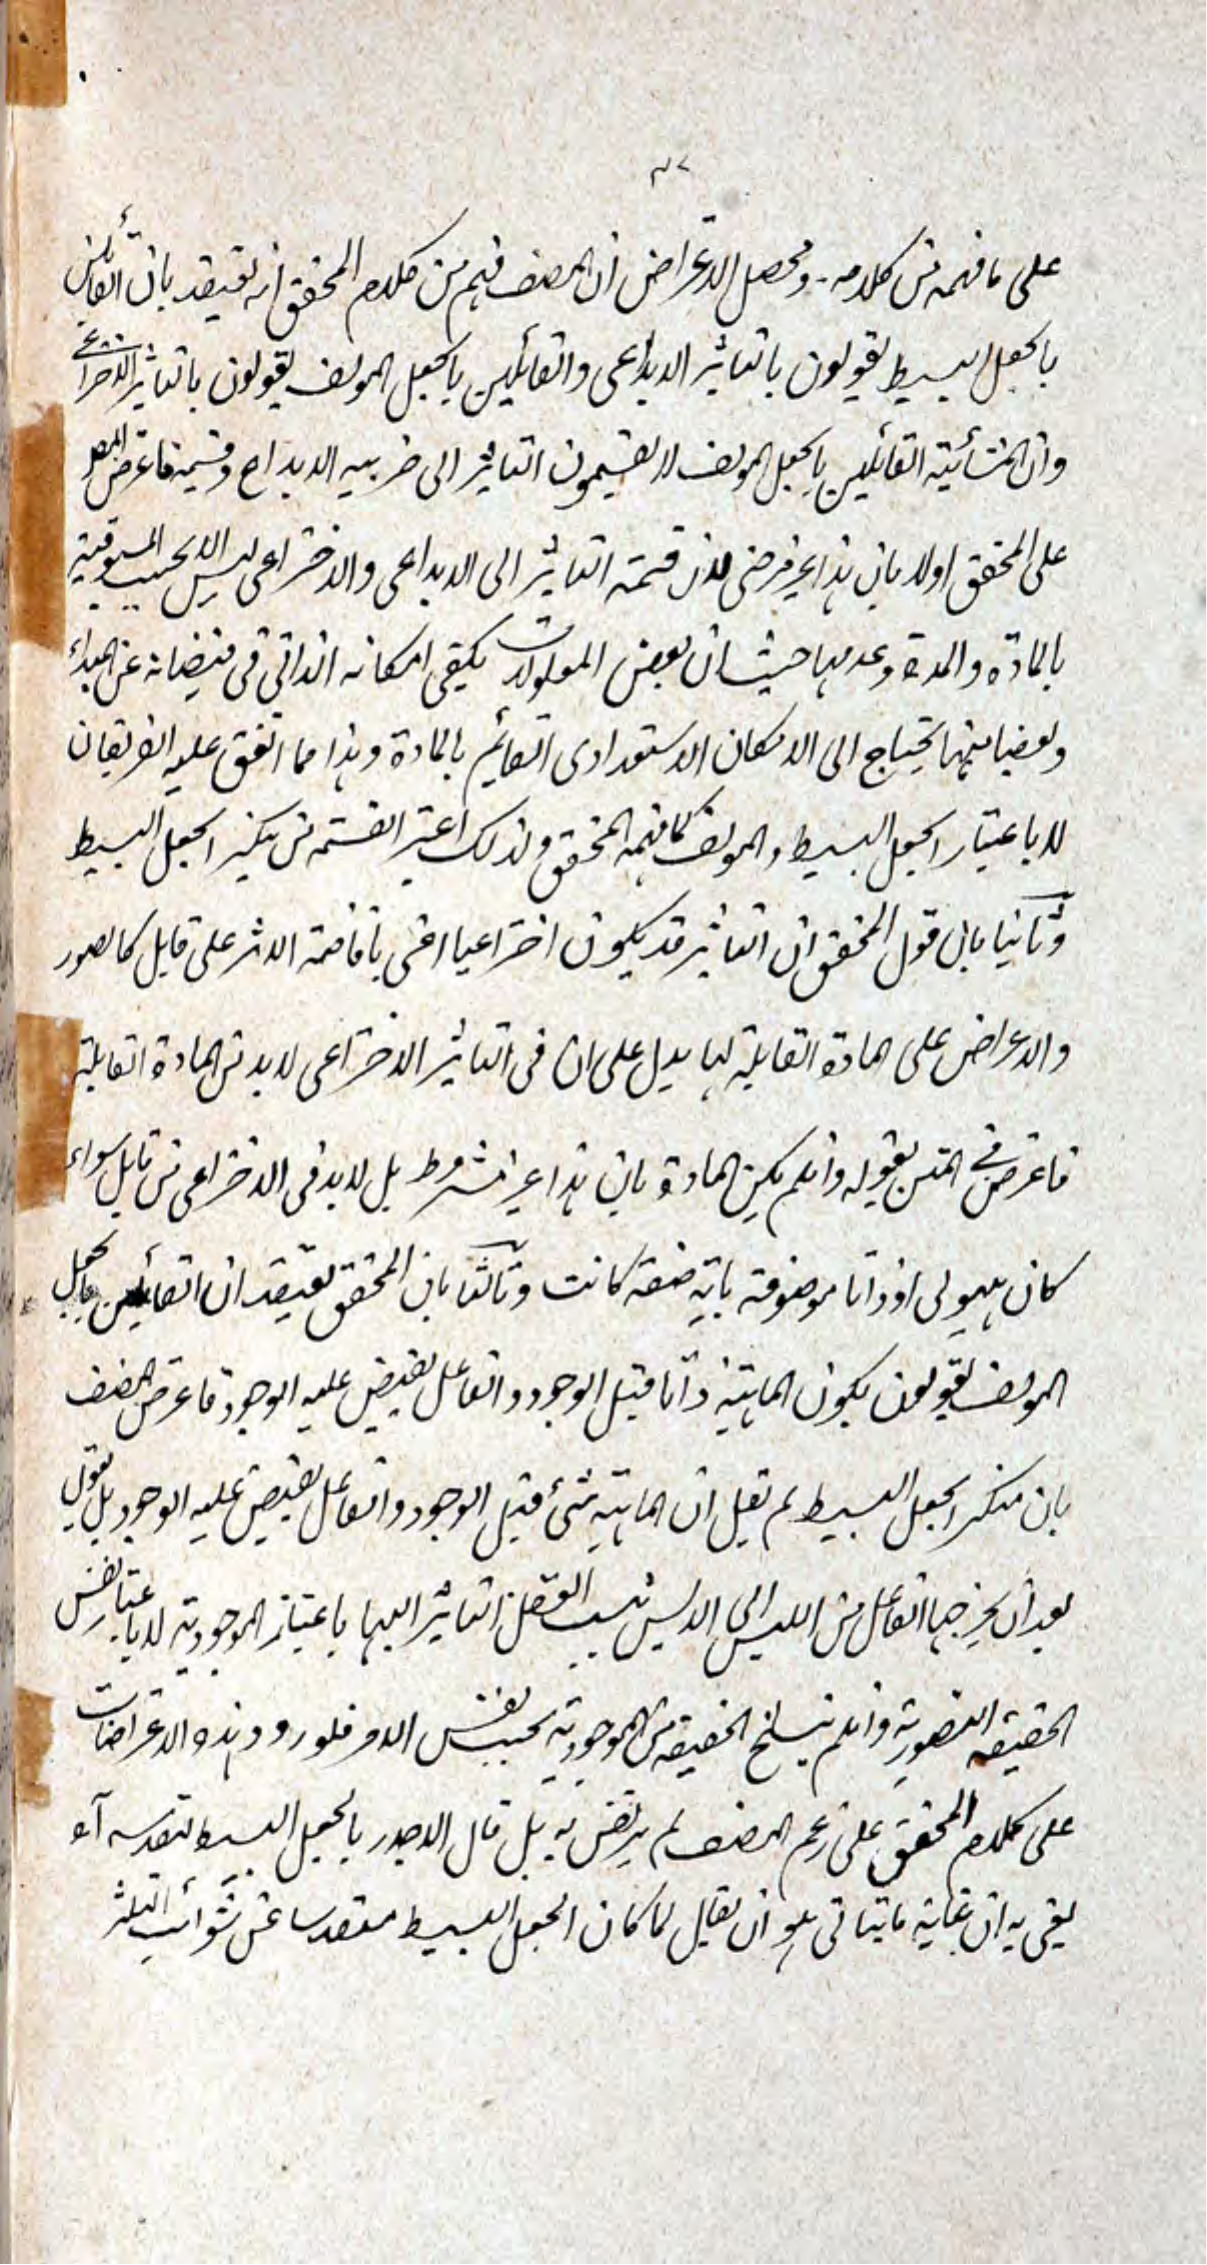 ٣٧
على ما فهمه من كلامه۔ ومحصل الاعتراض ان المصنف فهم من كلام المحقق انه يعتقد بان القائلين
بالجعل البسيط يقولون بالتاثير الابداعى والقائلين بالجعل المولف يقولون بالتاثير الاختراعى
وان المشائية القائلين بالجعل المولف لا يقسمون التاثير الى ضربيه الابداع وقسيمه فاعترض المصـ
على المحقق اولا بان هذا غير مرضى لان قسمة التاثير الى الابداعى والاختراعى ليس الا بحسب المسبوقية
بالمادة والمدة وعدمها حيث ان بعض المعلولات يكفى امكانه الذاتى فى فيضانه عن المبداء
وبعضا منها يحتاج الى الامكان الاستعدادى القائم بالمادة وهذا مما اتفق عليه الفريقان
لا باعتبار الجعل البسيط والمولف كما فهمه المحقق ولذلك اعتبر القسمة من ينكر الجعل البسيط
وثانيا بان قول المحقق ان التاثير قد يكون اختراعيا اعنى بافاضة الاثر على قابل كالصور
والاعراض على المادة القابلة لها يدل على ان فى التاثير الاختراعى لابد من المادة القابلة
فاعترض فى المتن بقوله وان لم يكن المادة بان هذا غير مشروط بل لابد فى الاختراعى من قابل سواء
كان هيولى او ذاتا موصوفة باية صفة كانت وثالثا بان المحقق يعتقد ان القائلين بالجعل
المولف يقولون بكون الماهية ذاتا قبل الوجود والفاعل يفيض عليه الوجود فاعترض المصنف
بان منكر الجعل البسيط لم يقل ان الماهية شئ قبل الوجود والفاعل يفيض عليه الوجود بل يقول
بعد ان يخرجها الفاعل من الليس الى الايس ينسب العقل التاثير اليها باعتبار الموجودية لا باعتبار نفس
الحقيقة التصورية وان لم ينسلخ الحقيقة من الموجودية بحسب نفس الامر فلورود هذه الاعتراضات
على كلام المحقق على زعم المصنف لم يرتض به بل قال الاجدر بالجعل البسيط لتقدسه آه
بقى به ان غاية ما يتاتى هو ان يقال لما كان الجعل البسيط مقدسا عن شوائب التكثر